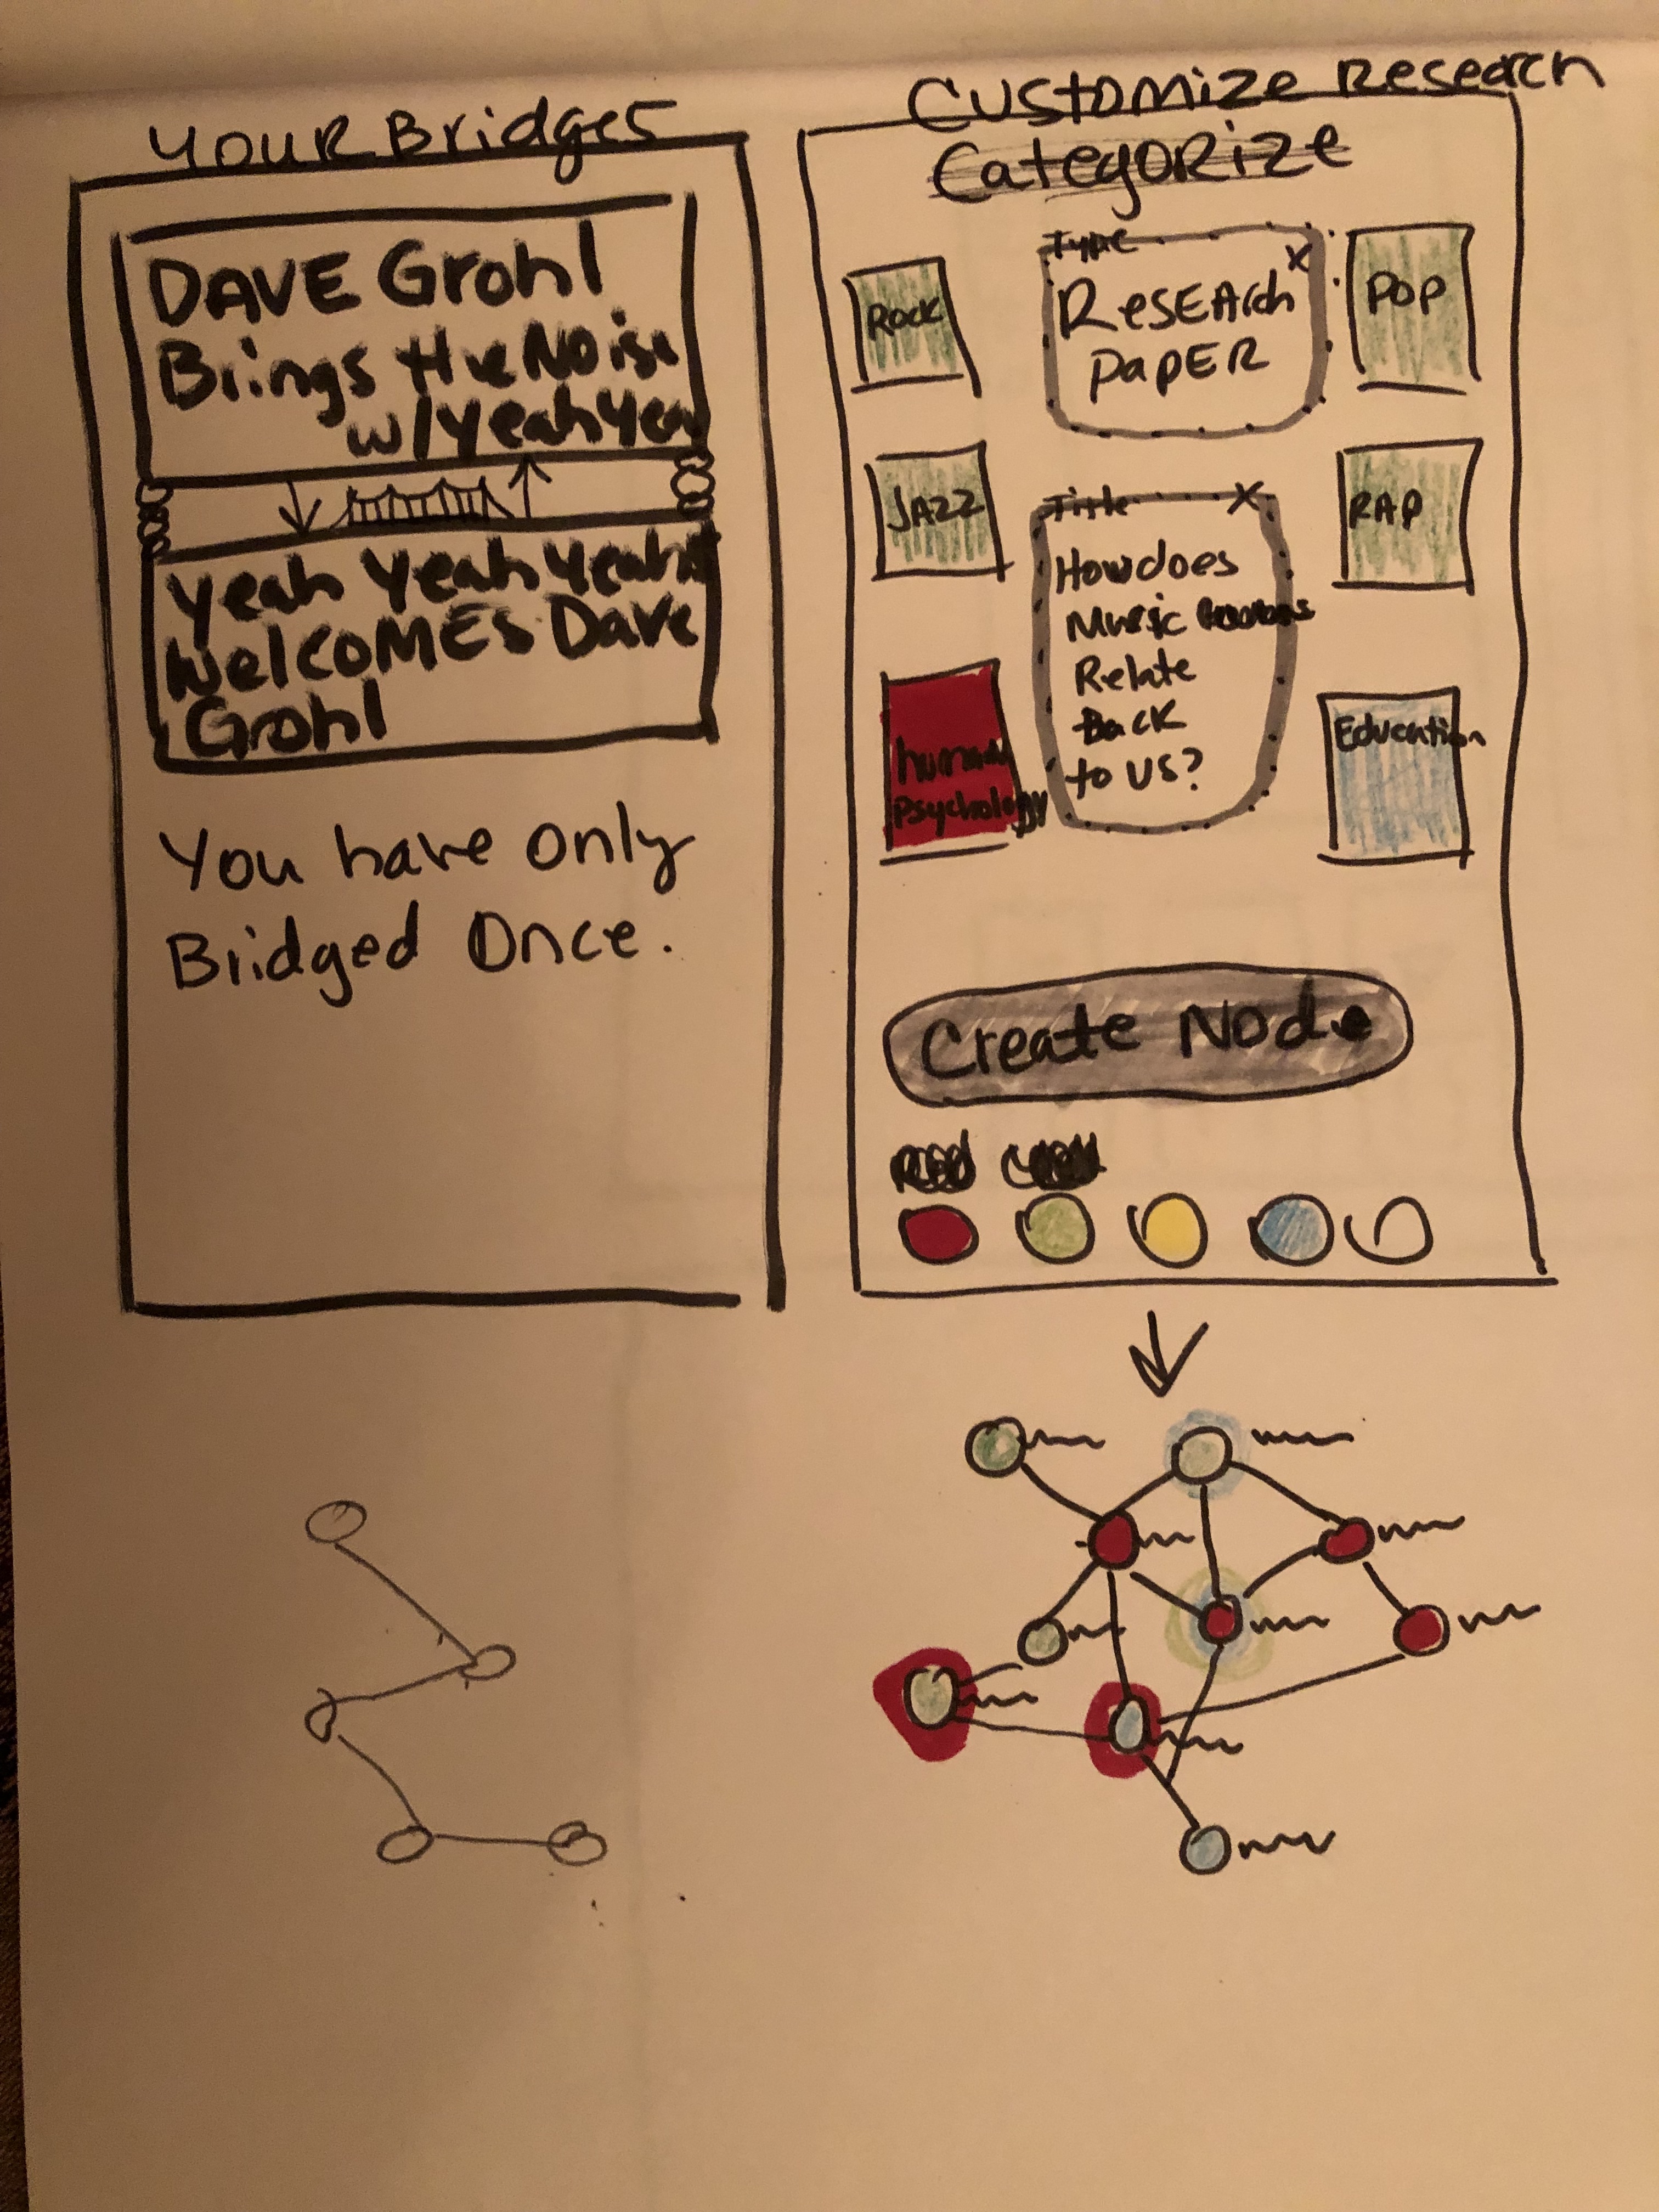 YOUR Bridges
DAVE Grohl
Brings the Noise
w/Yeah Yea
Yeah Yeah Yeahs
WelcoMEs Dave
Grohl
You have only
Bridged Once.
Customize Research
Categorize
Rock
Type X
ResEArch
PaPER
POP
JAZZ
RAP
Title X
How does
Music
Relate
Back
to us?
human
Psychology
Education
Create Node